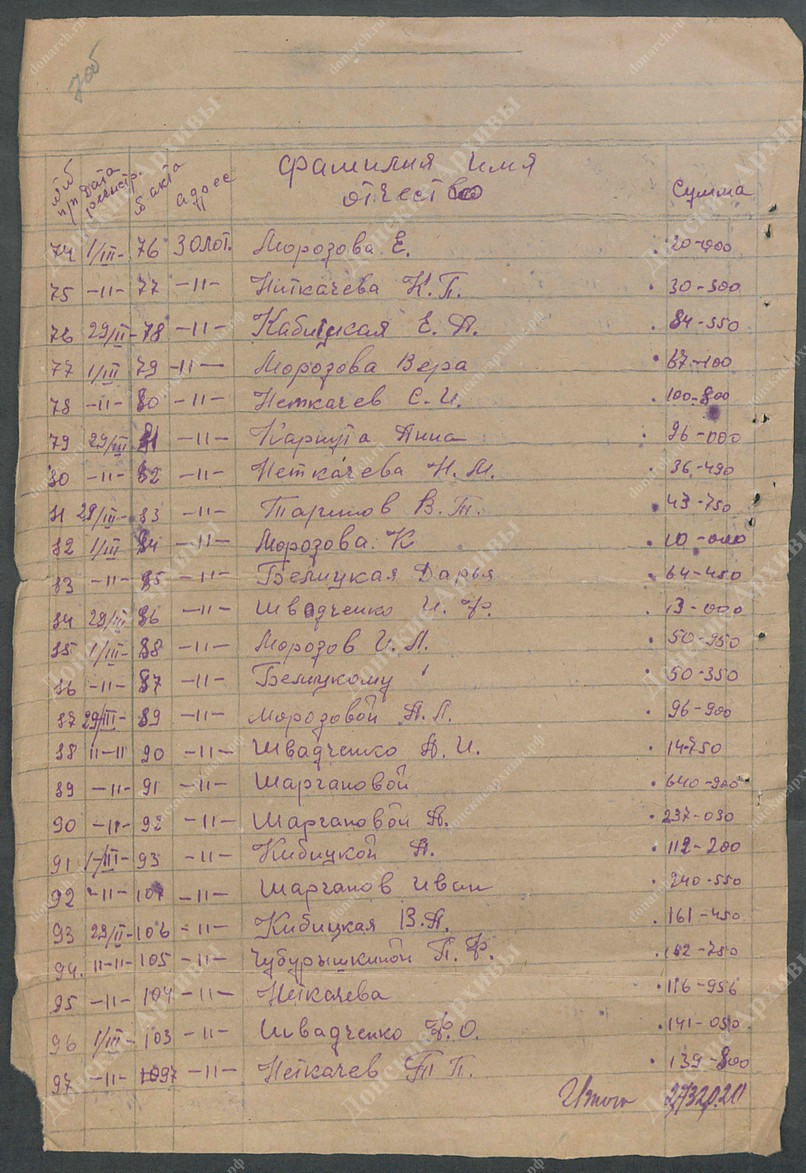 № п/п Дата регистр. № акта адрес Фамилия Имя отчество Сумма
74 1/III- 76 Золот. Морозова Е. 20-000
75 -11- 77 -11- Ниткачева К.П. 30-300
76 29/II- 78 -11- Кабицкая Е. А. 84-550
77 1/III 79 -11- Морозова Вера 67-100
78 -11- 80 -11- Неткачев С.И. 100-800
79 29/III 81 -11- Карпута Анна 96-000
80 -11- 82 -11- Неткачева Н.М. 36-490
81 29/III- 83 -11- В.Т. 43-750
82 1/III 84 -11- Морозова. К 10-000
83 -11- 85 -11- Белицкая Дарья 64-450
84 29/III 86 -11- Швадченко И. Ф. 13-000
85 1/III- 88 -11- Морозов И.Л. 50-950
86 -11- 87 -11- Белицкому 50-350
87 29/III- 89 -11- Морозовой А.Л. 96-900
88 11-11 90 -11- Швадченко А.И. 14-750
89 -11- 91 -11- Шаргановой 640-900
90 -11- 92 -11- Шаргановой А. 237-030
91 1/III- 93 -11- Кибицкой А. 112-200
92 -11- -11- Шарганов Иван 240-550
93 29/II- 106 -11- Кибицкая В.А. 161-450
94. 11-11- 105 -11- Чубурышкиной П.Ф. 162-750
95 -11- 104 -11- Неткачева 116-956
96 1/III- 103 -11- Швадченко Ф.О. 141-050
97 -11- -11- Неткачев Т П. 139-800
Итого